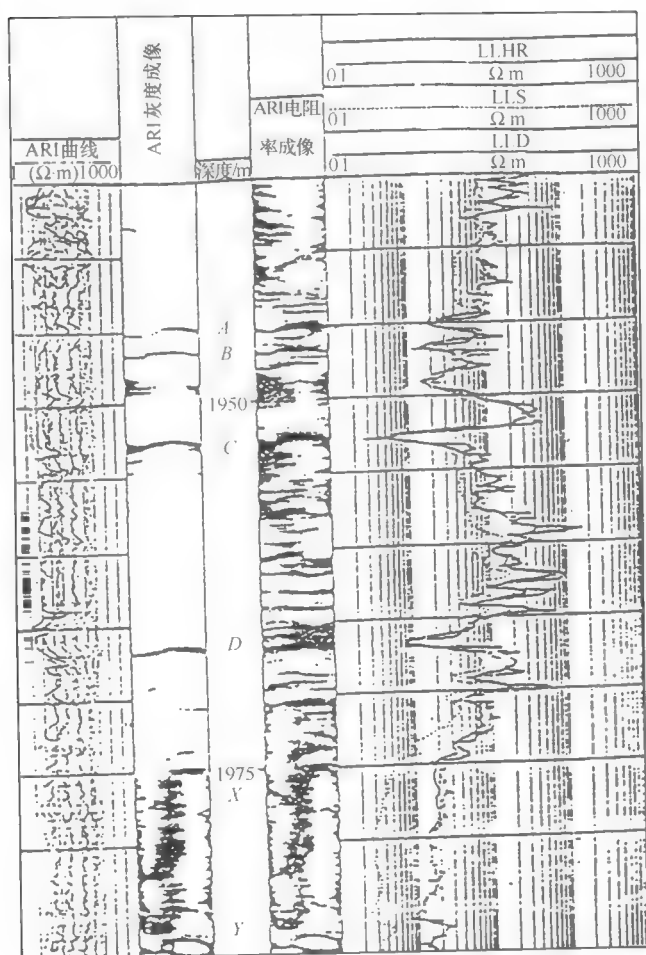 ARI曲线
1 (Ω·m)1000
ARI灰度成像
深度/m
ARI电阻
率成像
LLHR
01 Ω m 1000
LLS
01 Ω m 1000
LLD
01 Ω m 1000
A
B
1950
C
D
1975
X
Y